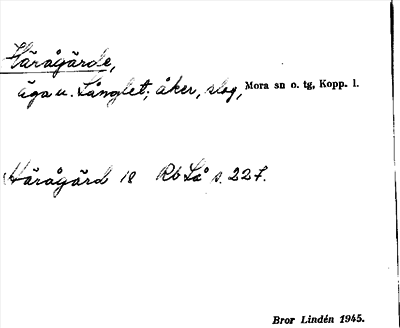 Härågärde,
äga u. Långlet; åker, slog, Mora sn o. tg, Kopp. l.
Härågärd 18 Rb Lå s. 227.
Bror Lindén 1945.